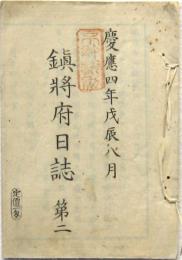 慶應四年戊辰八月
鎭將府日誌 第二